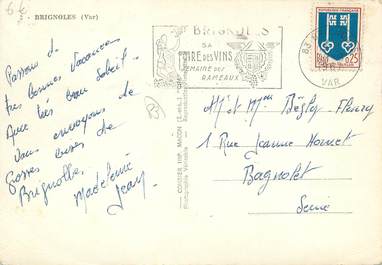 6€
BRIGNOLES (Var)
Passons de
très bonnes vacances
Avec très beau soleil.
Vous envoyons de
Grosses bises de
Brignolles.
Madeleine
Jean
BRIGNOLES
SA
FOIRE DES VINS
SEMAINE DES
RAMEAUX
83
VAR
REPUBLIQUE FRANÇAISE
0,25
COMBIER IMP. MACON
Mr et Mme Fleury
1 Rue Jeanne Hornet
Bagnolet
Seine